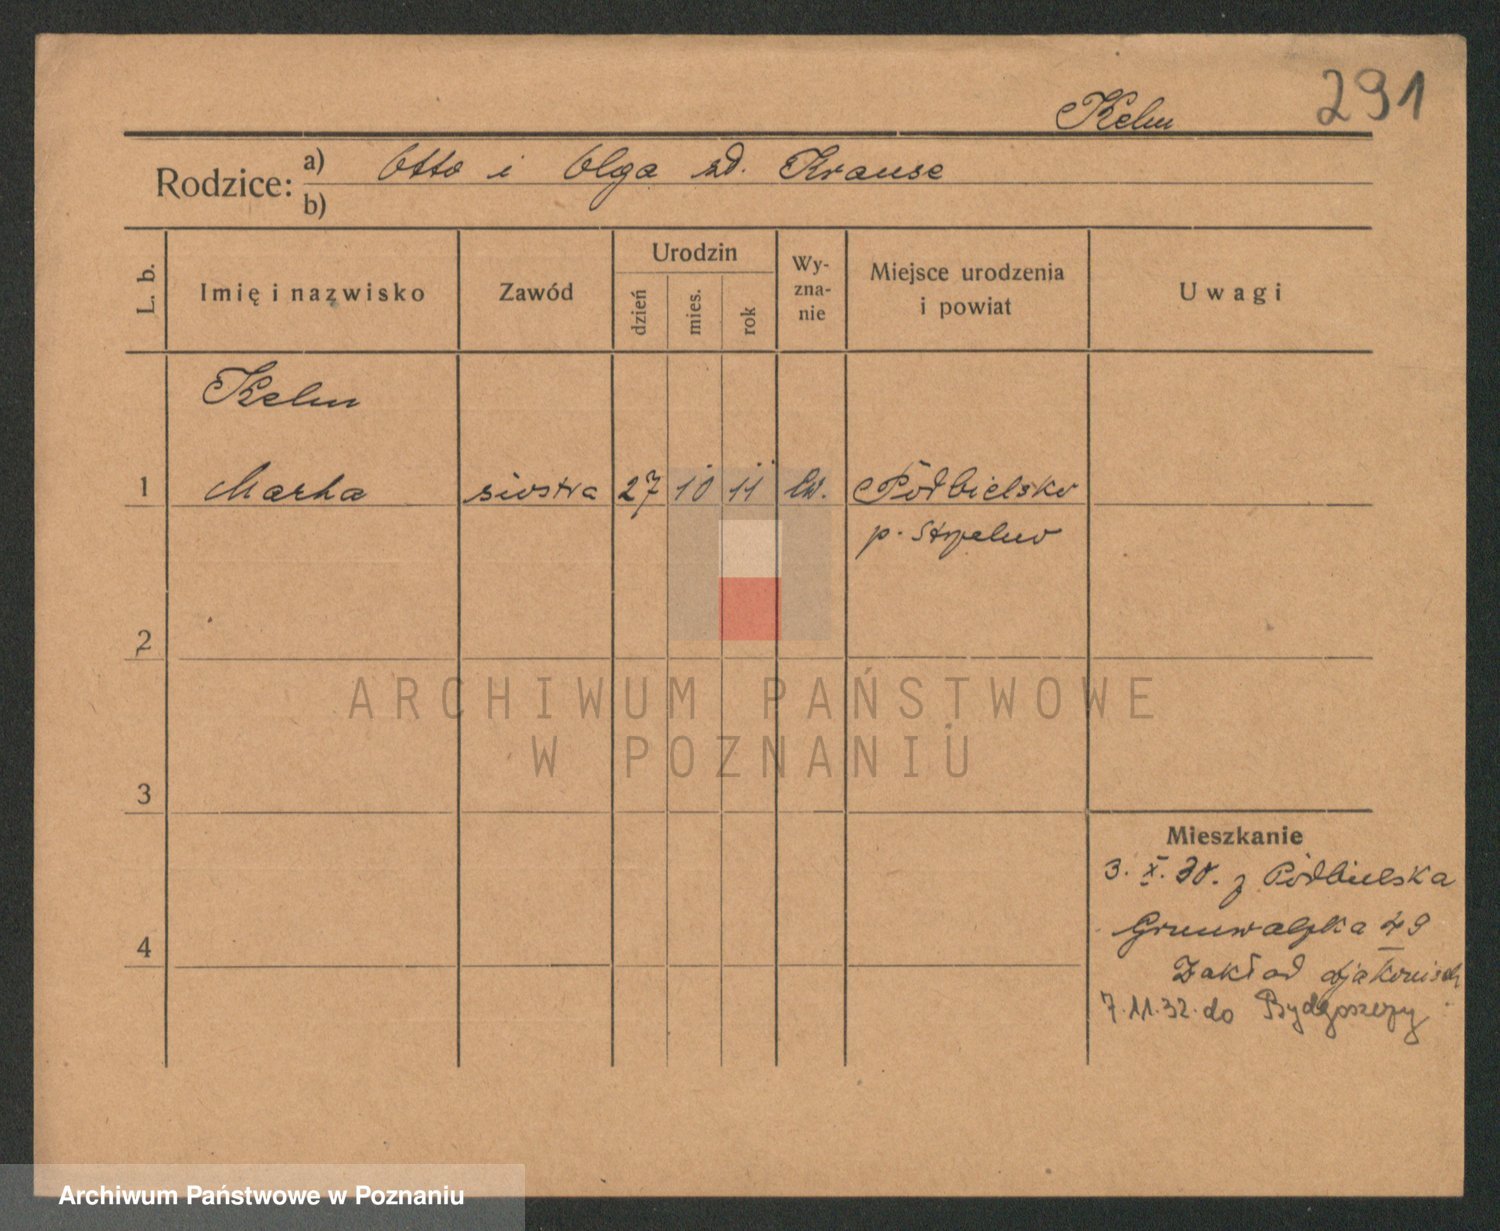 291
Kelm
Rodzice: a) Otto i Olga zd. Krause
b)
L. b.
Imię i nazwisko
Zawód
Urodzin
dzień
mies.
rok
Wy-
zna-
nie
Miejsce urodzenia
i powiat
Uwagi
Kelm
1 Marta siostra 27 10 11 ew. Podbielsko
p. Strzelno
2
ARCHIWUM PAŃSTWOWE
W POZNANIU
3
Mieszkanie
3. X. 30. z Podbielska
Grunwaldzka 49
4
Zakład djakonisek
7.11.32. do Bydgoszczy
Archiwum Państwowe w Poznaniu